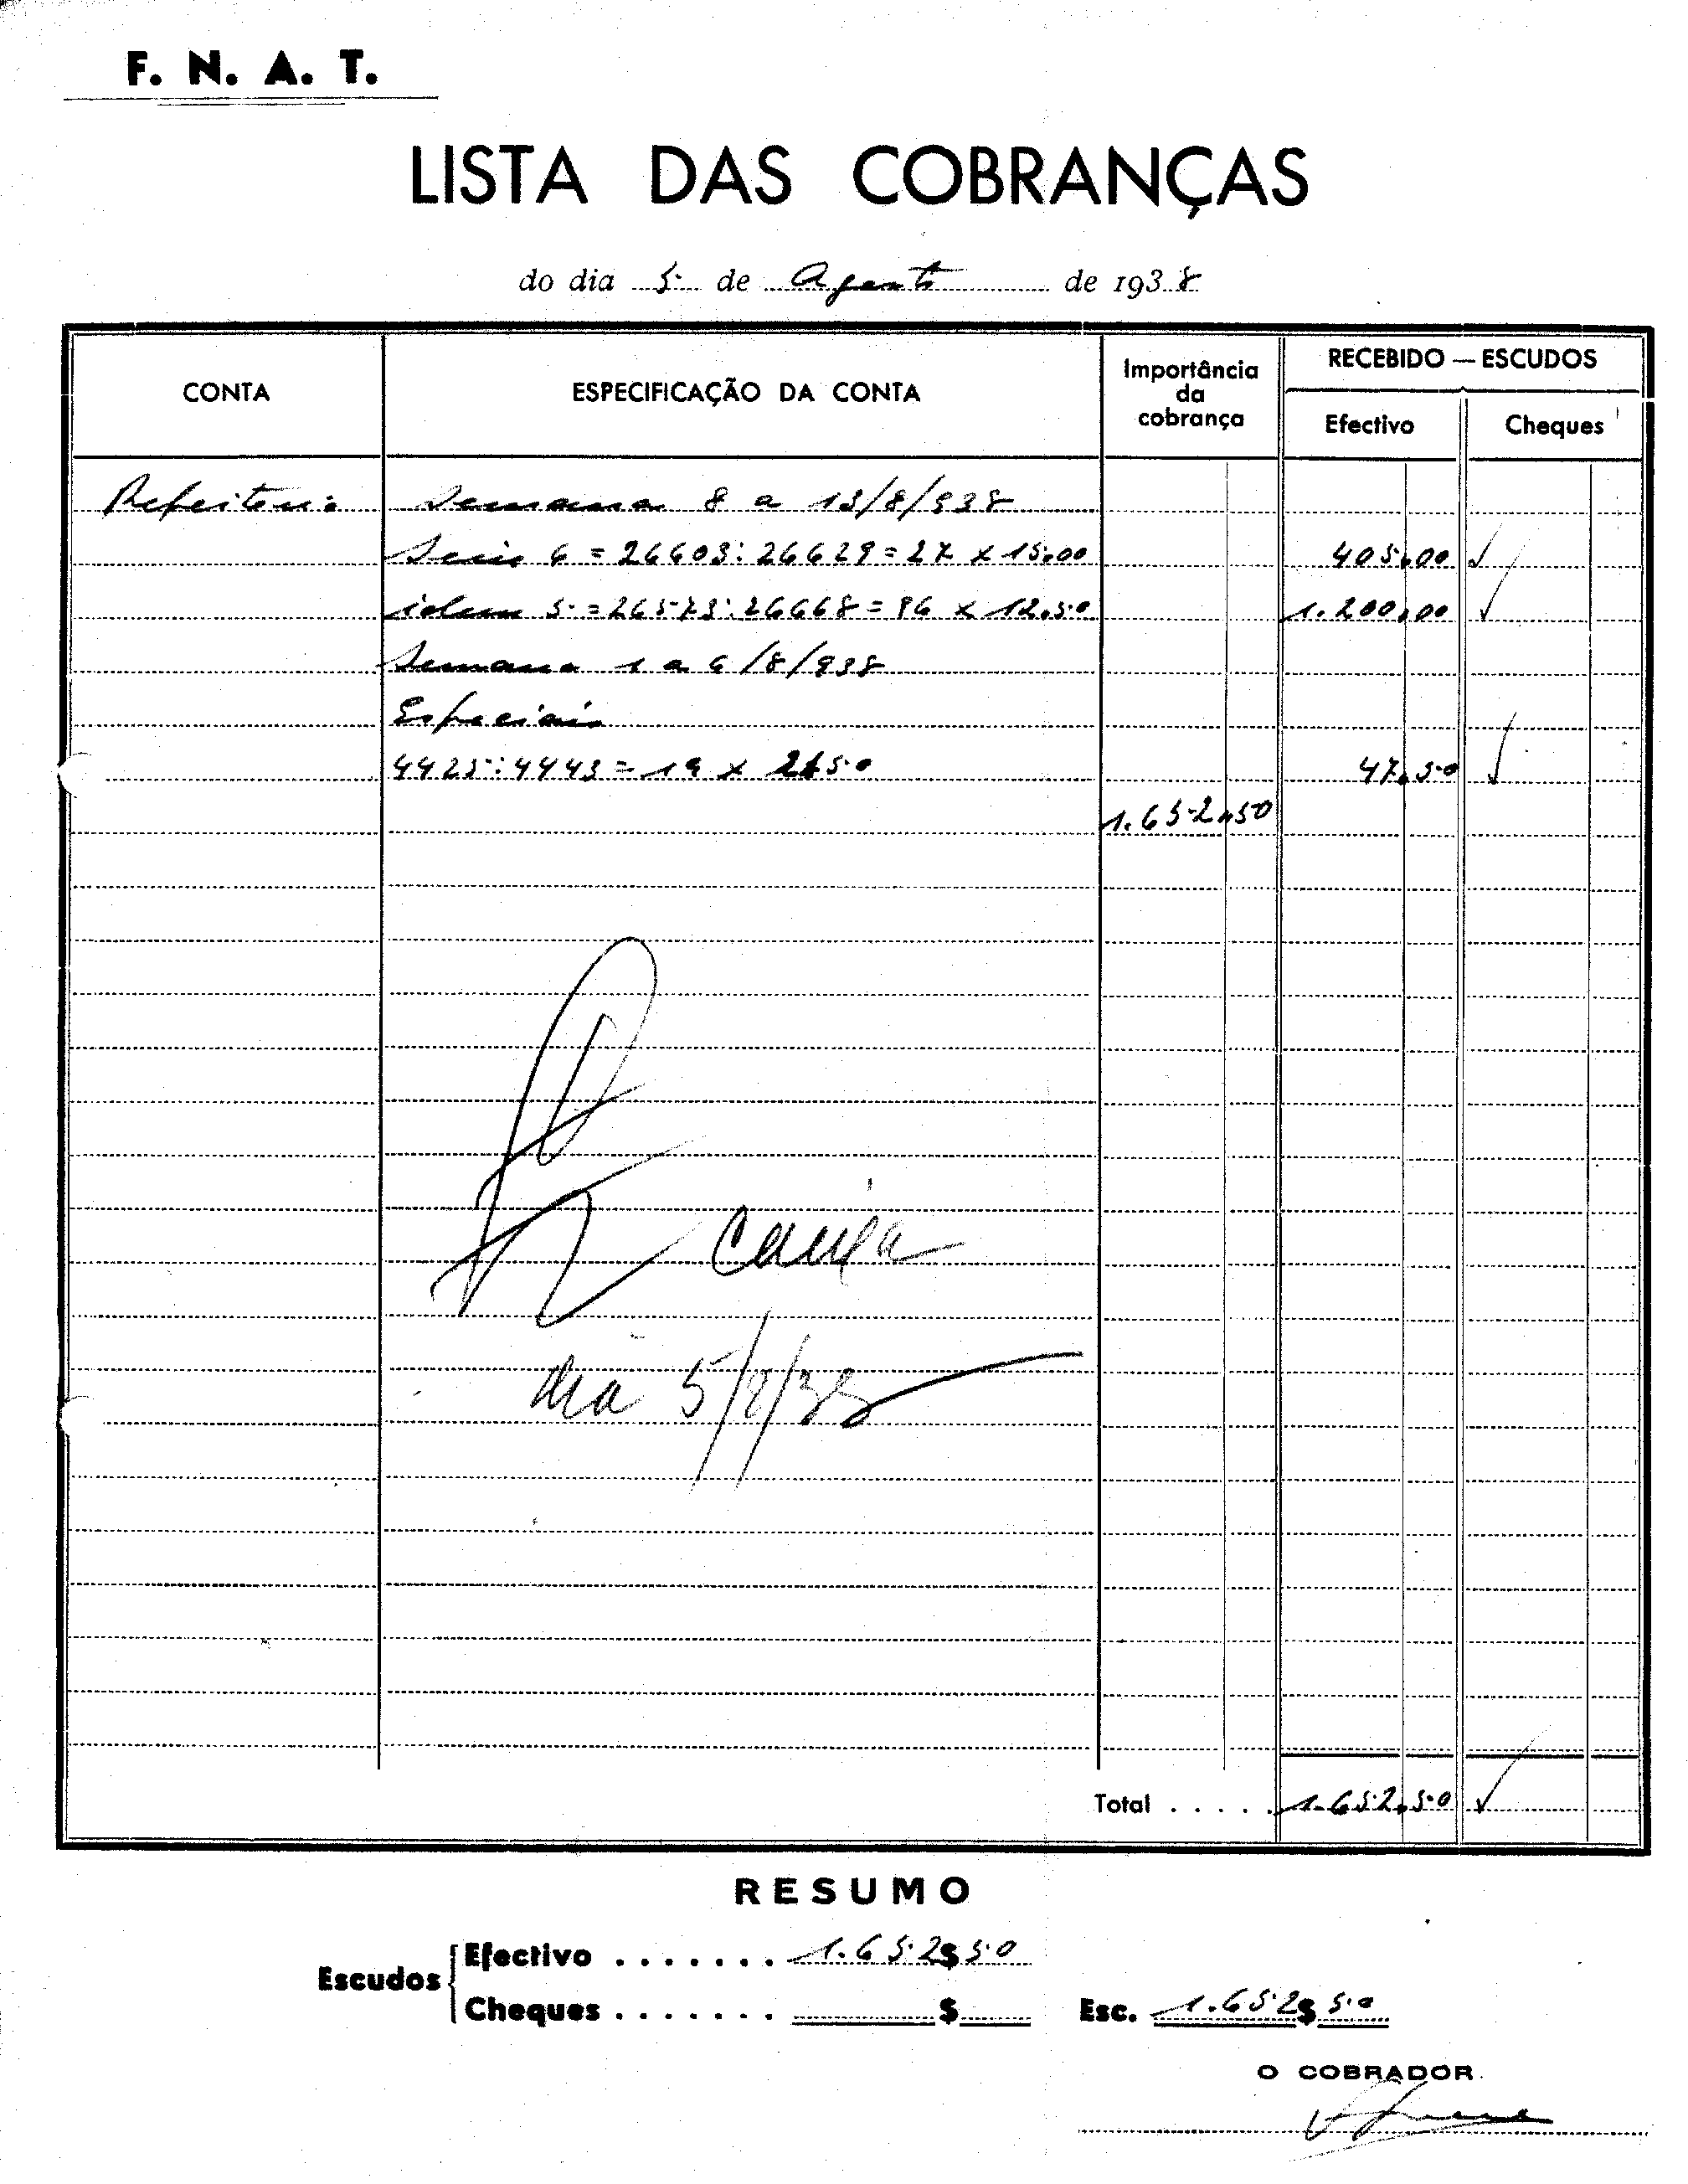 F. N. A. T.
LISTA DAS COBRANÇAS
do dia 5 de Agosto de 1938
CONTA
ESPECIFICAÇÃO DA CONTA
Importância
da
cobrança
RECEBIDO — ESCUDOS
Efectivo
Cheques
Refeitorio Semana 8 a 13/8/938
Serie 6 = 26603:26629 = 27 x 15,00 405,00
idem 5 = 26573:26668 = 96 x 12,50 1.200,00
Semana 1 a 6/8/938
Especiais
4425:4443 = 19 x 2$50 47,50
1.652,50
Caixa
dia 5/8/38
Total . . . . . 1.652,50
RESUMO
Escudos
Efectivo . . . . . . . 1.652$50
Cheques . . . . . . . $
Esc. 1.652$50
O COBRADOR